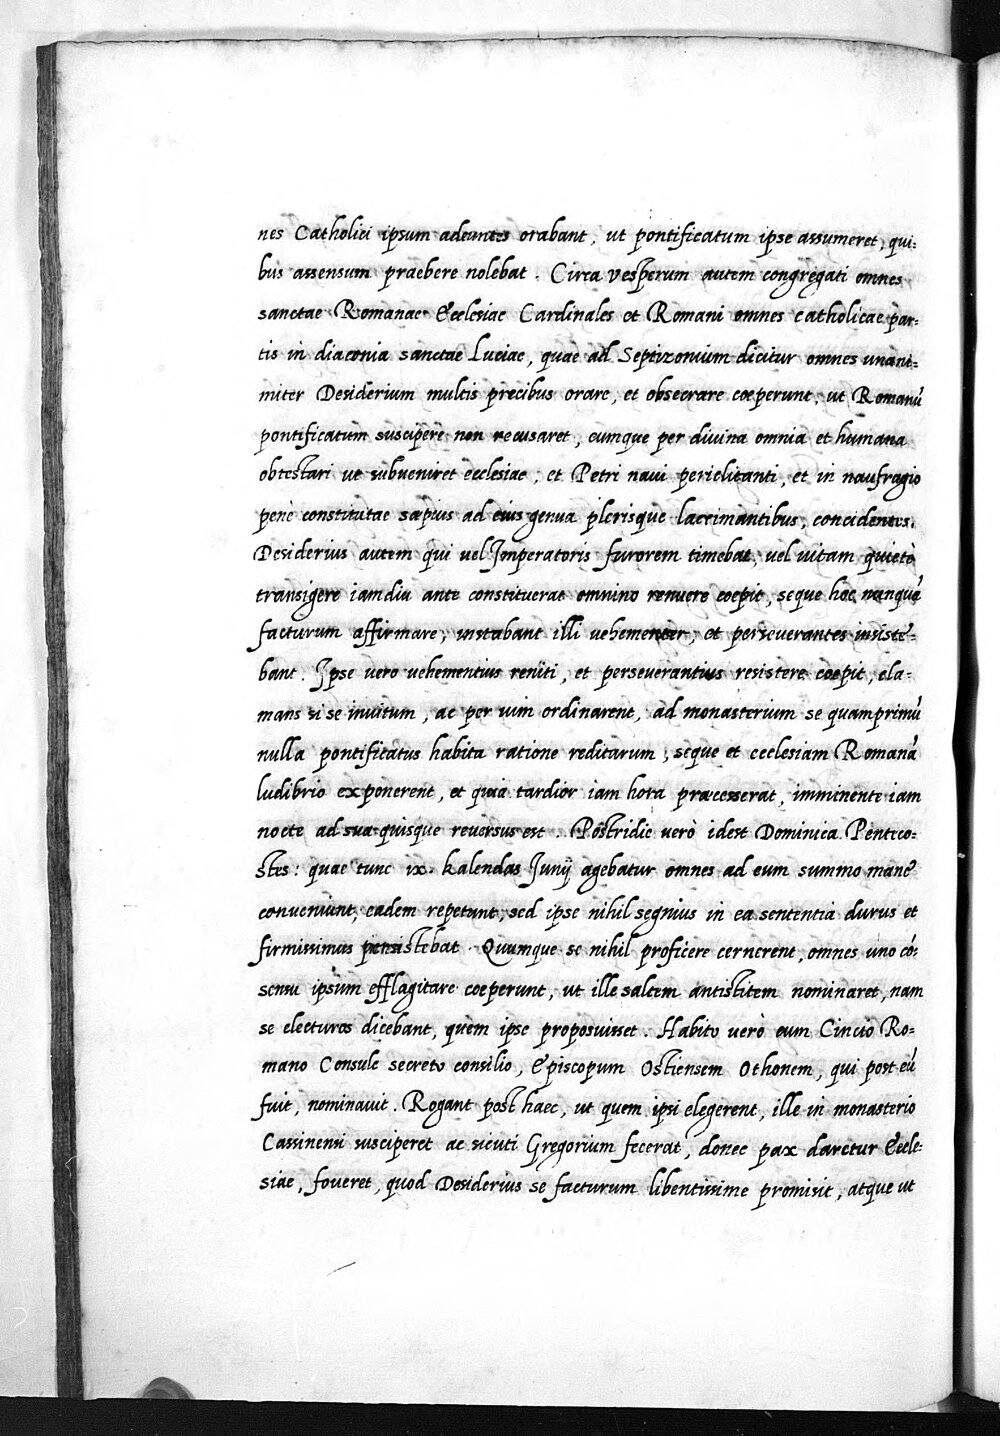 nes Catholici ipsum adeuntes orabant, ut pontificatum ipse assumeret, qui=
bus assensum praebere nolebat. Circa vesperum autem congregati omnes
sanctae Romanae Ecclesiae Cardinales et Romani omnes catholicae par=
tis in diaconia sanctae Luciae, quae ad Septizonium dicitur omnes unani=
miter Desiderium multis precibus orare, et obsecrare coeperunt, ut Romanū
pontificatum suscipere non recusaret, eumque per divina omnia et humana
obtestari ut subveniret ecclesiae, et Petri navi periclitanti, et in naufragio
penè constitutae saepius ad eius genua plerisque lacrimantibus, concidentes.
Desiderius autem qui vel Imperatoris furorem timebat, vel vitam quietè
transigere iamdiu ante constituerat omnino renuere coepit, seque hoc nunquā
facturum affirmare, instabant illi vehementer, et perseverantes insiste=
bant. Ipse vero vehementius reniti, et perseverantius resistere coepit, cla=
mans si se invitum, ac per vim ordinarent, ad monasterium se quamprimū
nulla pontificatus habita ratione rediturum, seque et ecclesiam Romanā
ludibrio exponerent, et quia tardior iam hora praecesserat, imminente iam
nocte ad sua quisque reversus est. Postridie verò idest Dominica Penteco=
stes: quae tunc ix. kalendas Junij agebatur omnes ad eum summo mane
conveniunt, eadem repetunt, sed ipse nihil segnius in ea sententia durus et
firmissimus persistebat. Quumque se nihil proficere cernerent, omnes uno cō=
sensu ipsum efflagitare coeperunt, ut ille saltem antistitem nominaret, nam
se electuros dicebant, quem ipse proposuisset. Habito verò cum Cincio Ro=
mano Consule secreto consilio, Episcopum Ostiensem Othonem, qui post eū
fuit, nominavit. Rogant post haec, ut quem ipsi elegerent, ille in monasterio
Cassinensi susciperet ac sicuti Gregorium fecerat, donec pax daretur Eccle=
siae, foveret, quod Desiderius se facturum libentissime promisit, atque ut